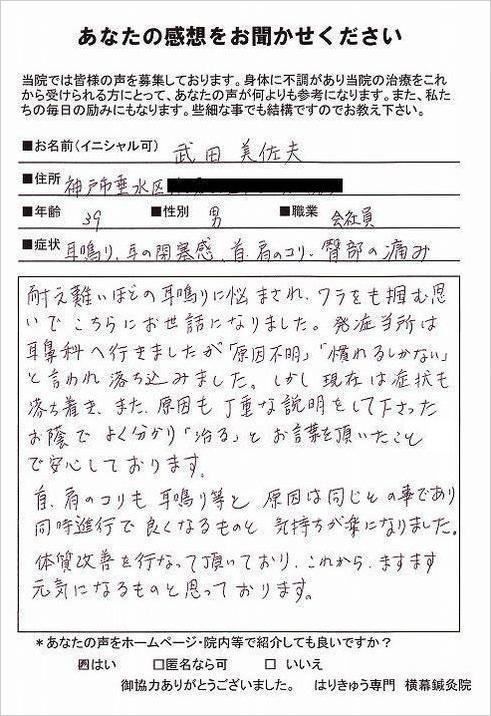 あなたの感想をお聞かせください
当院では皆様の声を募集しております。身体に不調があり当院の治療をこれ
から受けられる方にとって、あなたの声が何よりも参考になります。また、私た
ちの毎日の励みにもなります。些細な事でも結構ですのでお教え下さい。
■お名前(イニシャル可) 武田 美佐夫
■住所 神戸市垂水区
■年齢 39 ■性別 男 ■職業 会社員
■症状 耳鳴り、耳の閉塞感、首、肩のコリ、臀部の痛み
耐え難いほどの耳鳴りに悩まされ、ワラをも掴む思
いでこちらにお世話になりました。発症当所は
耳鼻科へ行きましたが「原因不明」「慣れるしかない」
と言われ落ち込みました。しかし現在は症状も
落ち着き、また、原因も丁重な説明をして下さった
お蔭でよく分かり「治る」とお言葉を頂いたこと
で安心しております。
首、肩のコリも耳鳴り等と、原因は同じとの事であり
同時進行で良くなるものと気持ちが楽になりました。
体質改善を行なって頂いており、これから、ますます
元気になるものと思っております。
*あなたの声をホームページ・院内等で紹介しても良いですか?
☑はい □匿名なら可 □ いいえ
御協力ありがとうございました。 はりきゅう専門 横幕鍼灸院